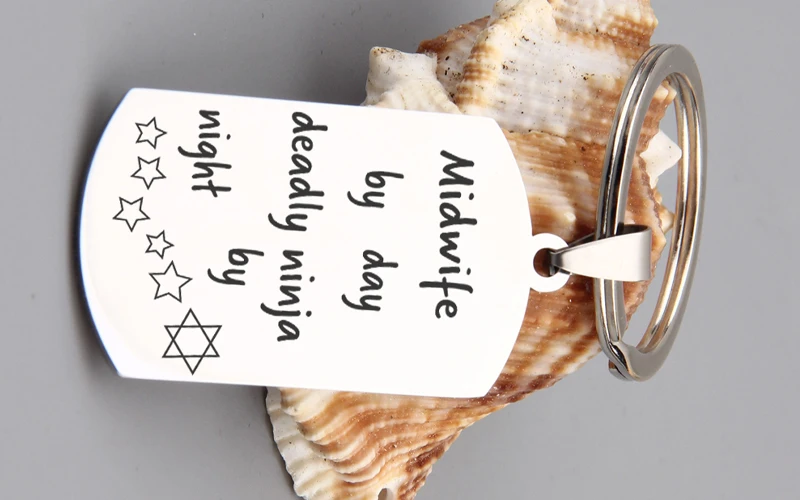 Midwife
by day
deadly ninja
by
night